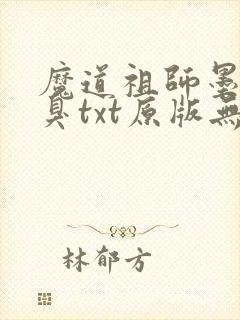 魔道祖師墨
臭txt原版無
林郁方